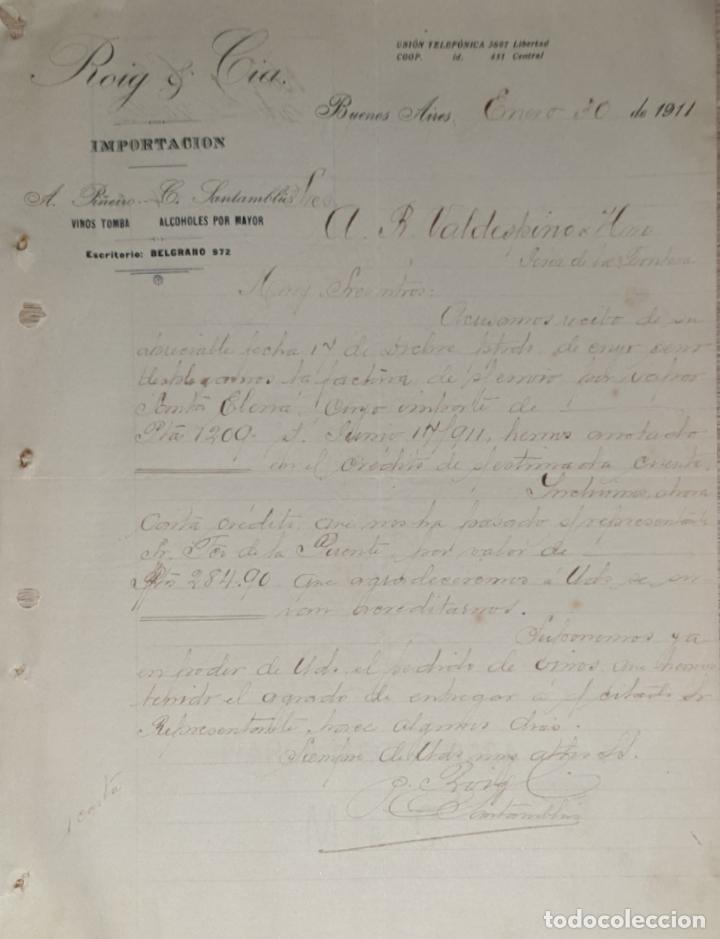 Roig & Cia.
UNIÓN TELEFÓNICA 3607 Libertad
COOP. id. 451 Central
Buenos Aires, Enero 30 de 1911
IMPORTACION
A. Piñeiro - C. Santamblús
VINOS TOMBA ALCOHOLES POR MAYOR
Escritorio: BELGRANO 972
Sres
A. R. Valdespino & Hno
Jerez de la Frontera
Muy Sres ntros:
Acusamos recibo de su
apreciable fecha 17 de de cuyo seno
la factura de s/envio por vapor
Santa Elena, cuyo importe de
Pta 1209- Junio 17/911, hemos anotado
en el crédito de s/estimada cuenta.
Incluimos ahora
Carta crédito que nos ha pasado s/representante
Sr. Fco de la Puente, por valor de
Pta 284.90 que agradeceremos á Uds se sir
van acreditarnos.
Suponemos ya
en poder de Uds el pedido de vinos que hemos
tenido el agrado de entregar á s/citado Sr
Representante hace algunos dias.
Siempre de Uds muy attos
p. Roig C.
Santamblús
1 carta
todocoleccion